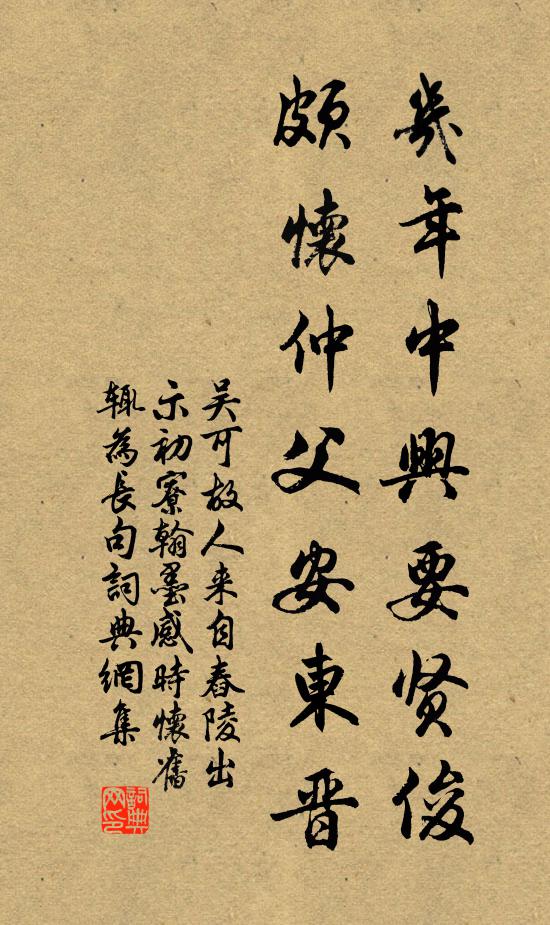 幾年中興要贤俊
頗懷仲父安東晋
吴可故人来自舂陵出
示初寮翰墨感時懷舊
輒為長句詞典網集
詞典
网印